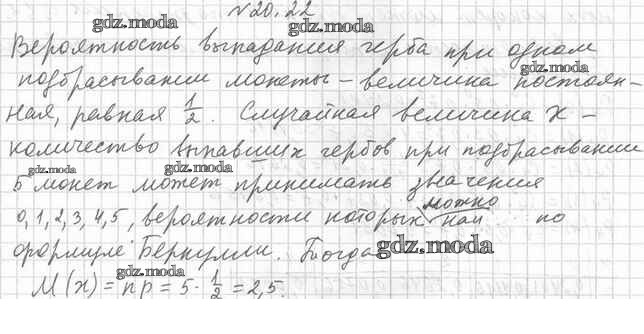 №20.22
gdz.moda gdz.moda
Вероятность выпадания герба при одном
gdz.moda
подбрасывании монеты – величина постоян-
ная, равная 1/2. Случайная величина X –
количество выпавших гербов при подбрасывании
gdz.moda gdz.moda
5 монет может принимать значения
можно
0, 1, 2, 3, 4, 5, вероятности которых най по
формуле Бернулли. Тогда
gdz.moda
gdz.moda
M(x) = np = 5 · 1/2 = 2,5.